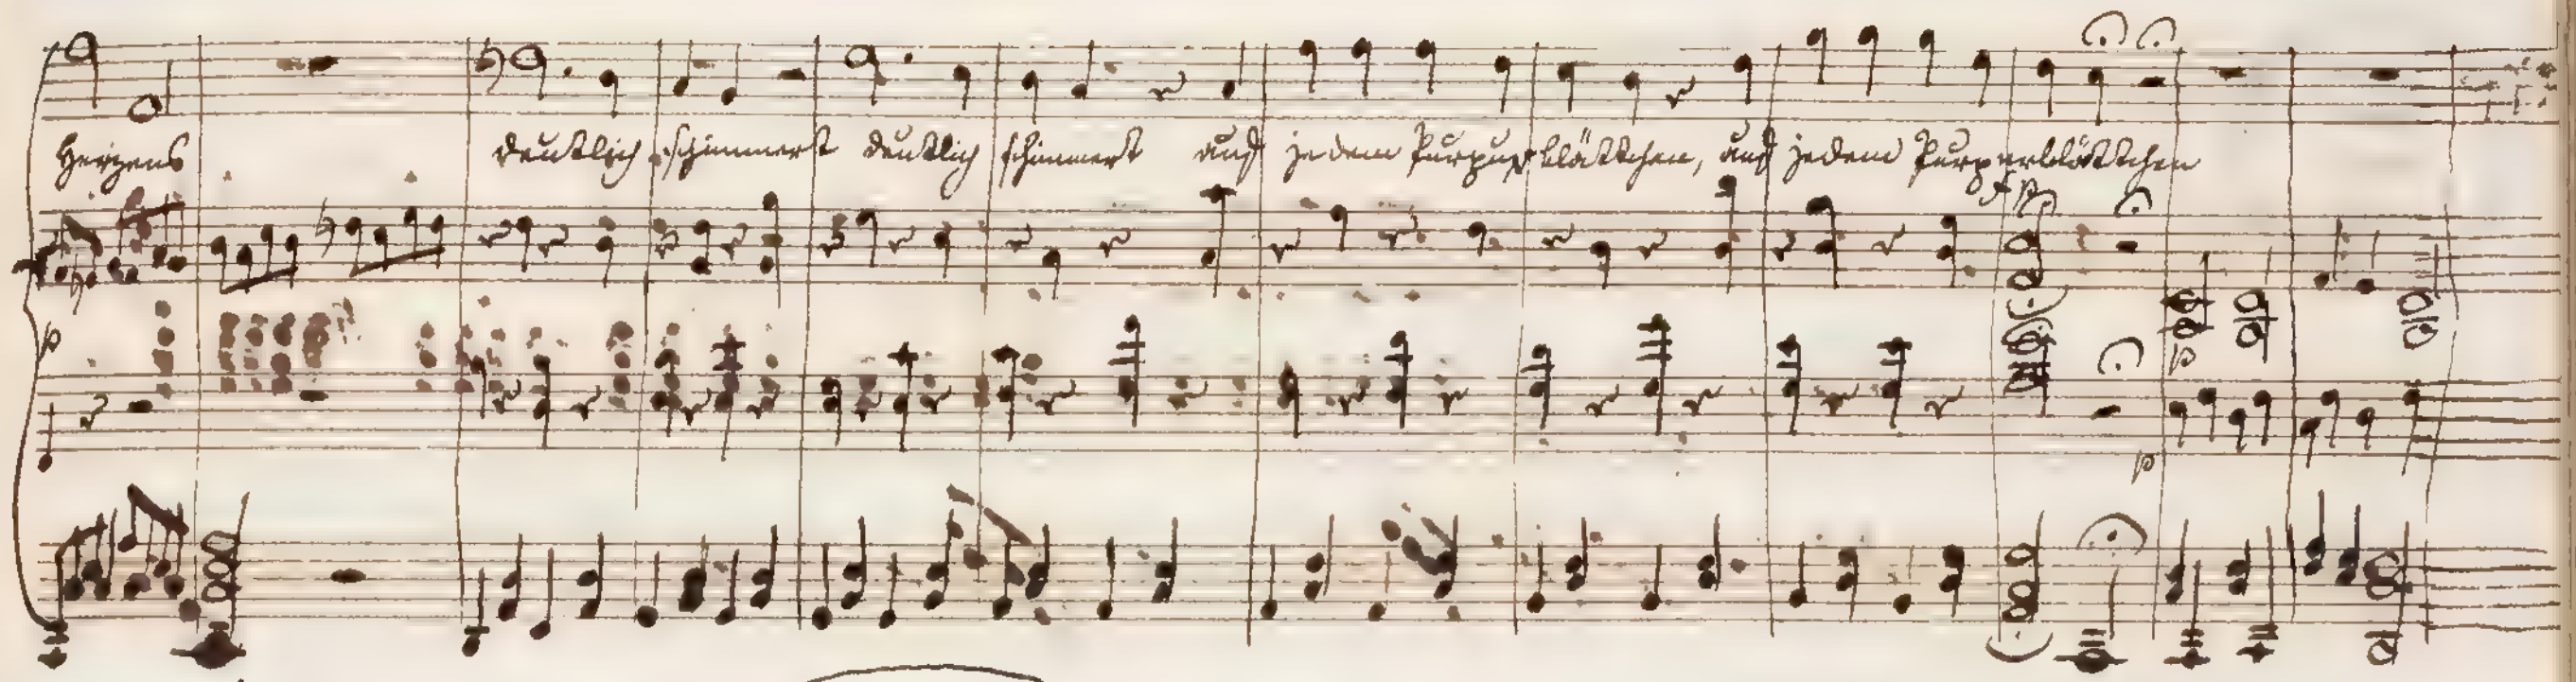 Herzens deutlich schimmert deutlich schimmert auf jedem Purpurblättchen, auf jedem Purpurblättchen
fp
p
p
p